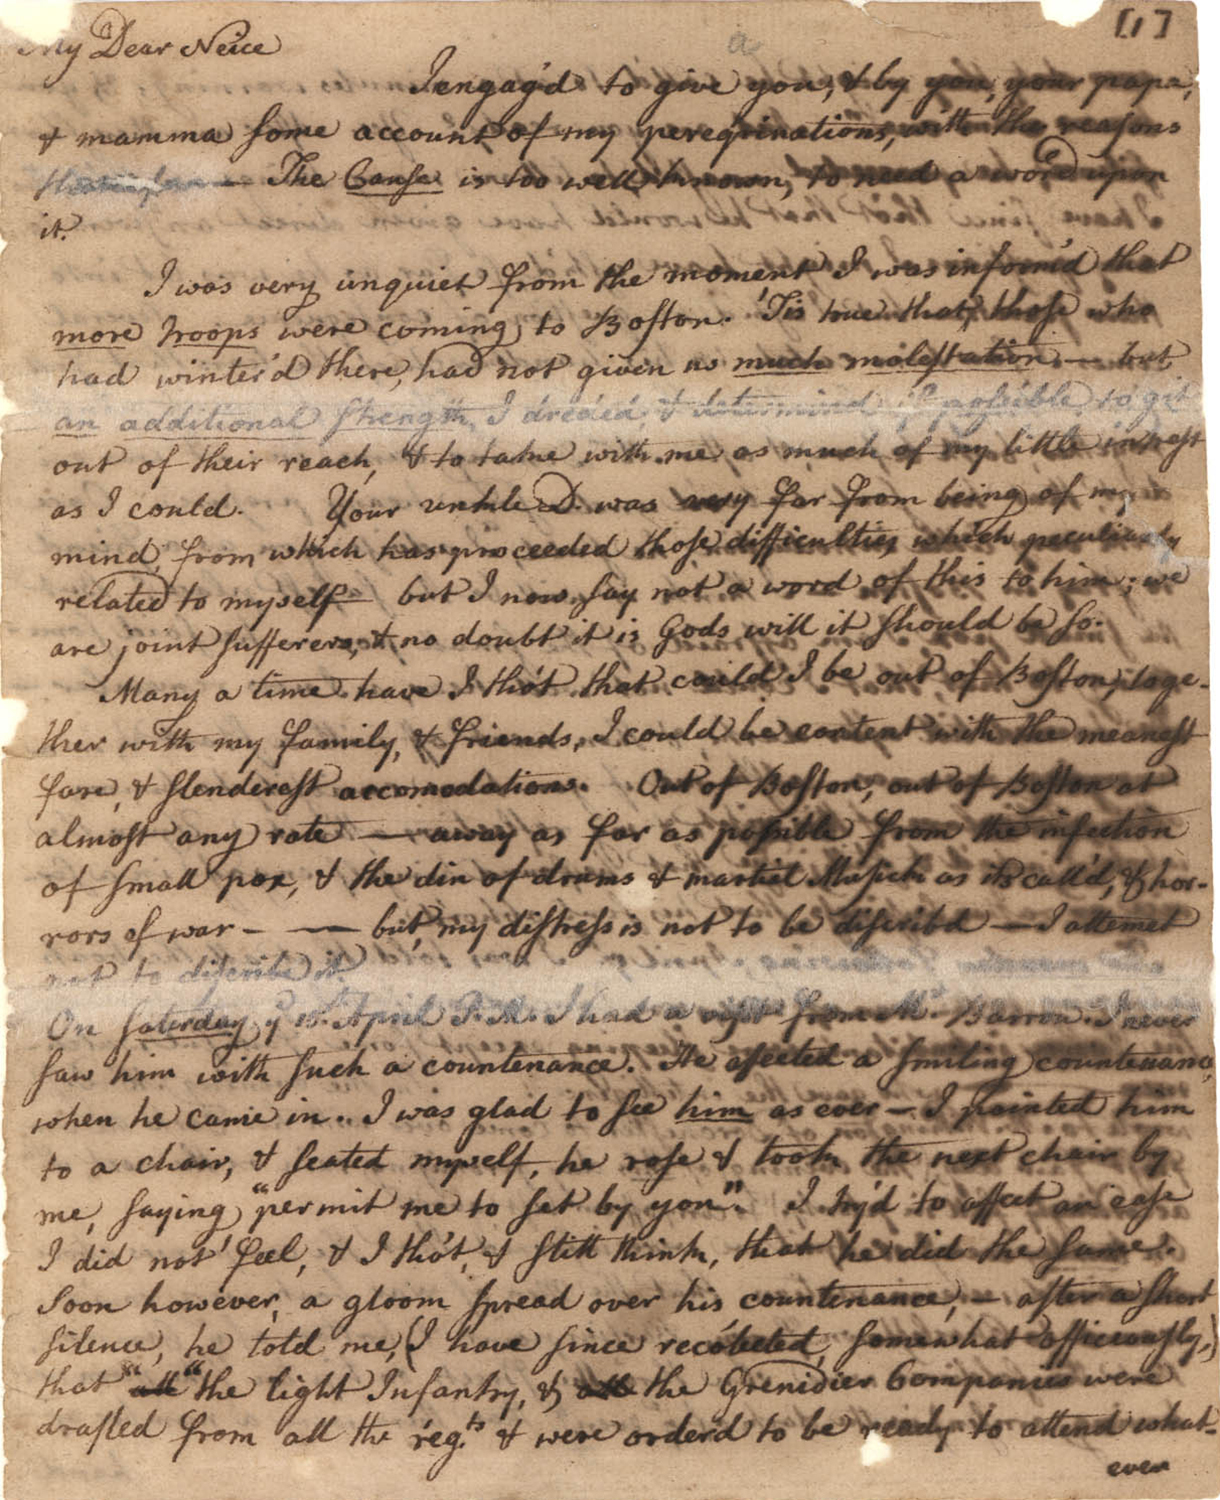 [1]
My Dear Neice
I engag'd to give you, & by you, your papa,
& mamma some account of my peregrinations, with the reasons
— The Cause is too well known, to need a word upon
it.
I was very unquiet from the moment I was inform'd that
more troops were coming to Boston. 'Tis true that those who
had winter'd there, had not given us much molestation — but
an additional strength, I dreded, & determined if possible to git
out of their reach, & to take with me as much of my little intrest
as I could. Your unkle D. was very far from being of my
mind, from which has proceeded those difficulties which peculiarly
related to myself — but I now say not a word of this to him; we
are joint sufferers, & no doubt it is Gods will it should be so.
Many a time have I tho't that could I be out of Boston, toge-
ther with my family, & friends, I could be content with the meanest
fare, & slenderest accomodation. Out of Boston, out of Boston at
almost any rate — away as far as possible from the infection
of small pox, & the din of drums & martiel Musick as its call'd, & hor-
rors of war — — but my distress is not to be discribd — I attemet
not to discribe it.
On saterday ye 15th. April P.M. I had a visit from Mr. Barron. I never
saw him with such a countenance. He afected a smiling countenance,
when he came in.. I was glad to see him as ever — I pointed him
to a chair, & seated myself, he rose & took the next chair by
me, saying "permit me to set by you". I try'd to affect an ease
I did not feel, & I tho't, & still think, that he did the same.
Soon however, a gloom spread over his countenance, — after a short
silence, he told me, (I have since recolected, somewhat officeously,)
that "all" the light Infantry, & all the Grenidier Companies were
drafted from all the reg.ts & were order'd to be ready to attend what-
ever